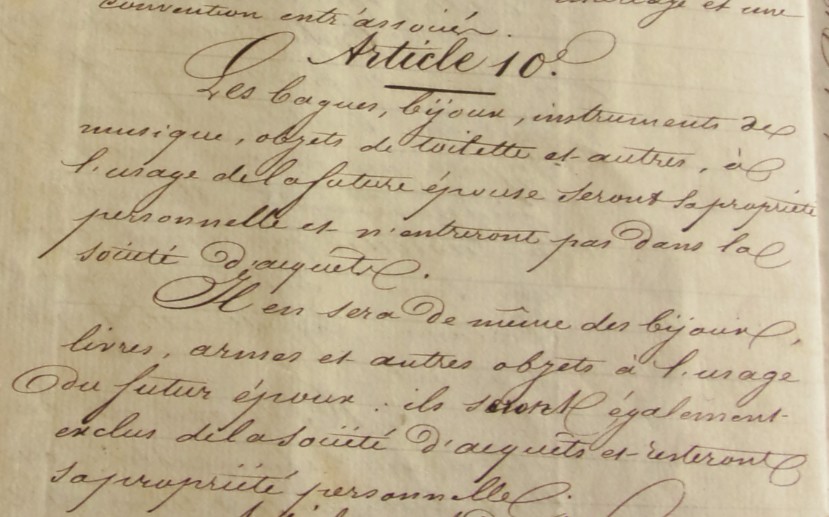 convention entr'associés. mariage et une
Article 10.e
Les bagues, bijoux, instruments de
musique, objets de toilette et autres, à
l'usage de la future épouse seront sa propriété
personnelle et n'entreront pas dans la
société d'acquêts.
Il en sera de même des bijoux,
livres, armes et autres objets à l'usage
du futur époux : ils seront également
exclus de la société d'acquêts et resteront
sa propriété personnelle.